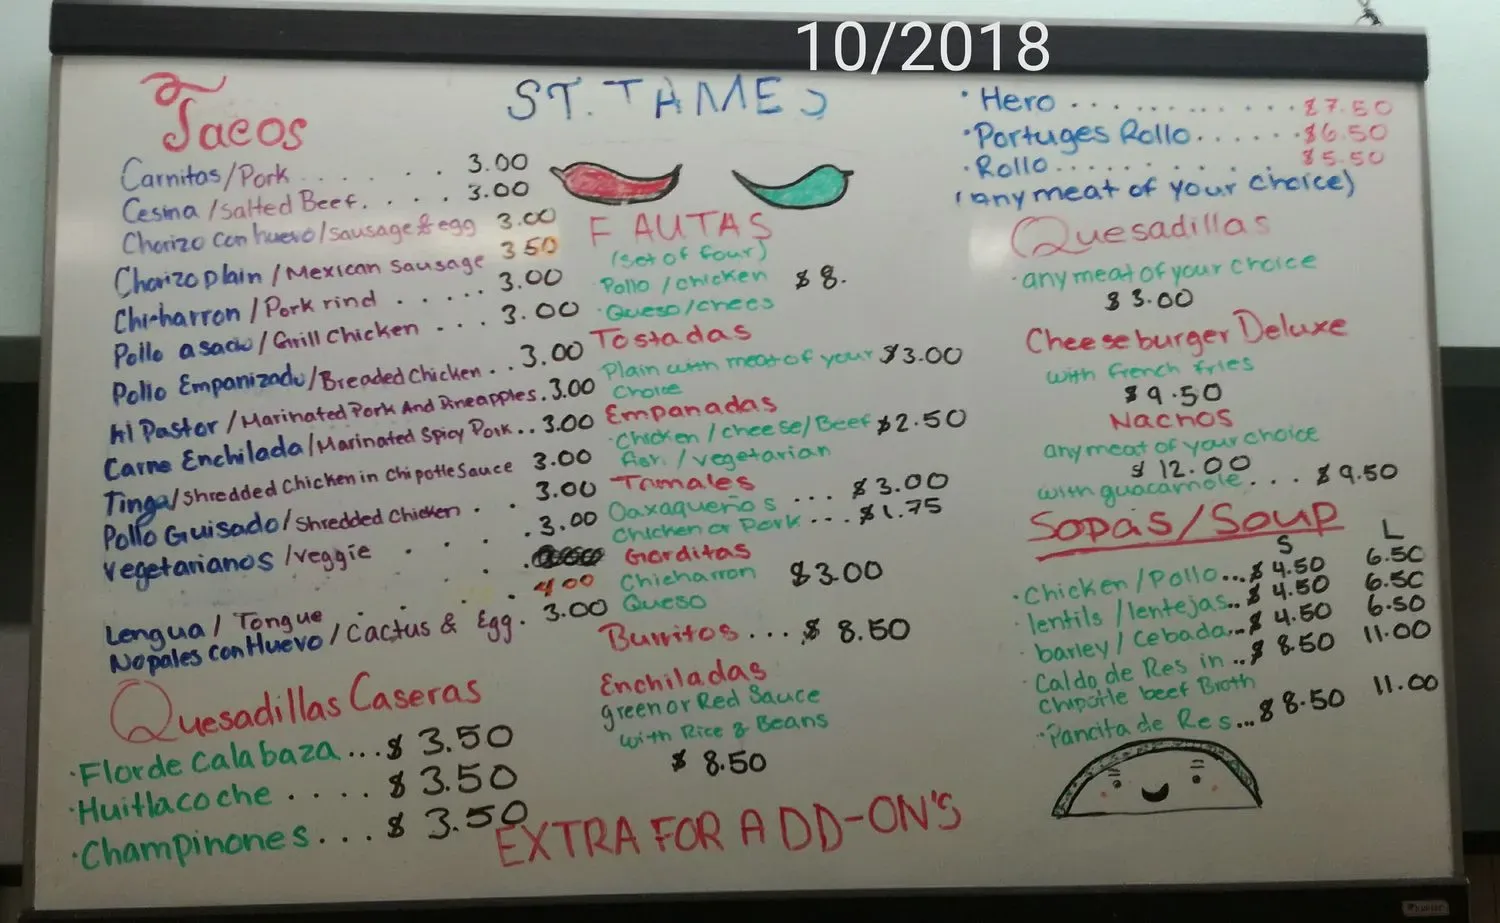 10/2018
ST. JAMES
Tacos
Carnitas/Pork . . . . . . 3.00
Cesina/Salted Beef. . . . 3.00
Chorizo con huevo/sausage & egg 3.00
Chorizo plain/Mexican sausage 3 50
Chicharron/Pork rind . . . . . 3.00
Pollo asado/Grill Chicken . . . 3.00
Pollo Empanizado/Breaded Chicken . . 3.00
Al Pastor/Marinated Pork And Pineapples . 3.00
Carne Enchilada/Marinated Spicy Pork . . 3.00
Tinga/Shredded Chicken in Chipotle Sauce 3.00
Pollo Guisado/Shredded Chicken . . 3.00
Vegetarianos/veggie . . . . 3.00
Lengua/Tongue . . . . . 4.00
Nopales con Huevo/Cactus & Egg. 3.00
Quesadillas Caseras
·Flor de calabaza ... $ 3.50
·Huitlacoche . . . . $ 3.50
·Champinones . . . $ 3.50
F AUTAS
(set of four)
·Pollo/chicken $ 8.
·Queso/chees
Tostadas
Plain with meat of your $3.00
Choice
Empanadas
·Chicken/cheese/Beef $2.50
fish/vegetarian
Tamales
Oaxaqueños ... $3.00
Chicken or Pork ... $1.75
Gorditas
Chicharron $3.00
Queso
Burritos ... $ 8.50
Enchiladas
green or Red Sauce
with Rice & Beans
$ 8.50
EXTRA FOR ADD-ON'S
·Hero . . . . . . . . . . . . $7.50
·Portuges Rollo . . . . . . $6.50
·Rollo . . . . . . . . . . $5.50
(any meat of your choice)
Quesadillas
·any meat of your choice
$3.00
Cheeseburger Deluxe
with french fries
$9.50
Nachos
any meat of your choice
$ 12.00
with guacamole . . . . $9.50
Sopas/Soup
S L
·Chicken/Pollo ... $ 4.50 6.50
·lentils/lentejas .. $ 4.50 6.50
·barley/Cebada ... $ 4.50 6.50
·Caldo de Res in .. $ 8.50 11.00
chipotle beef Broth
·Pancita de Res ... $ 8.50 11.00